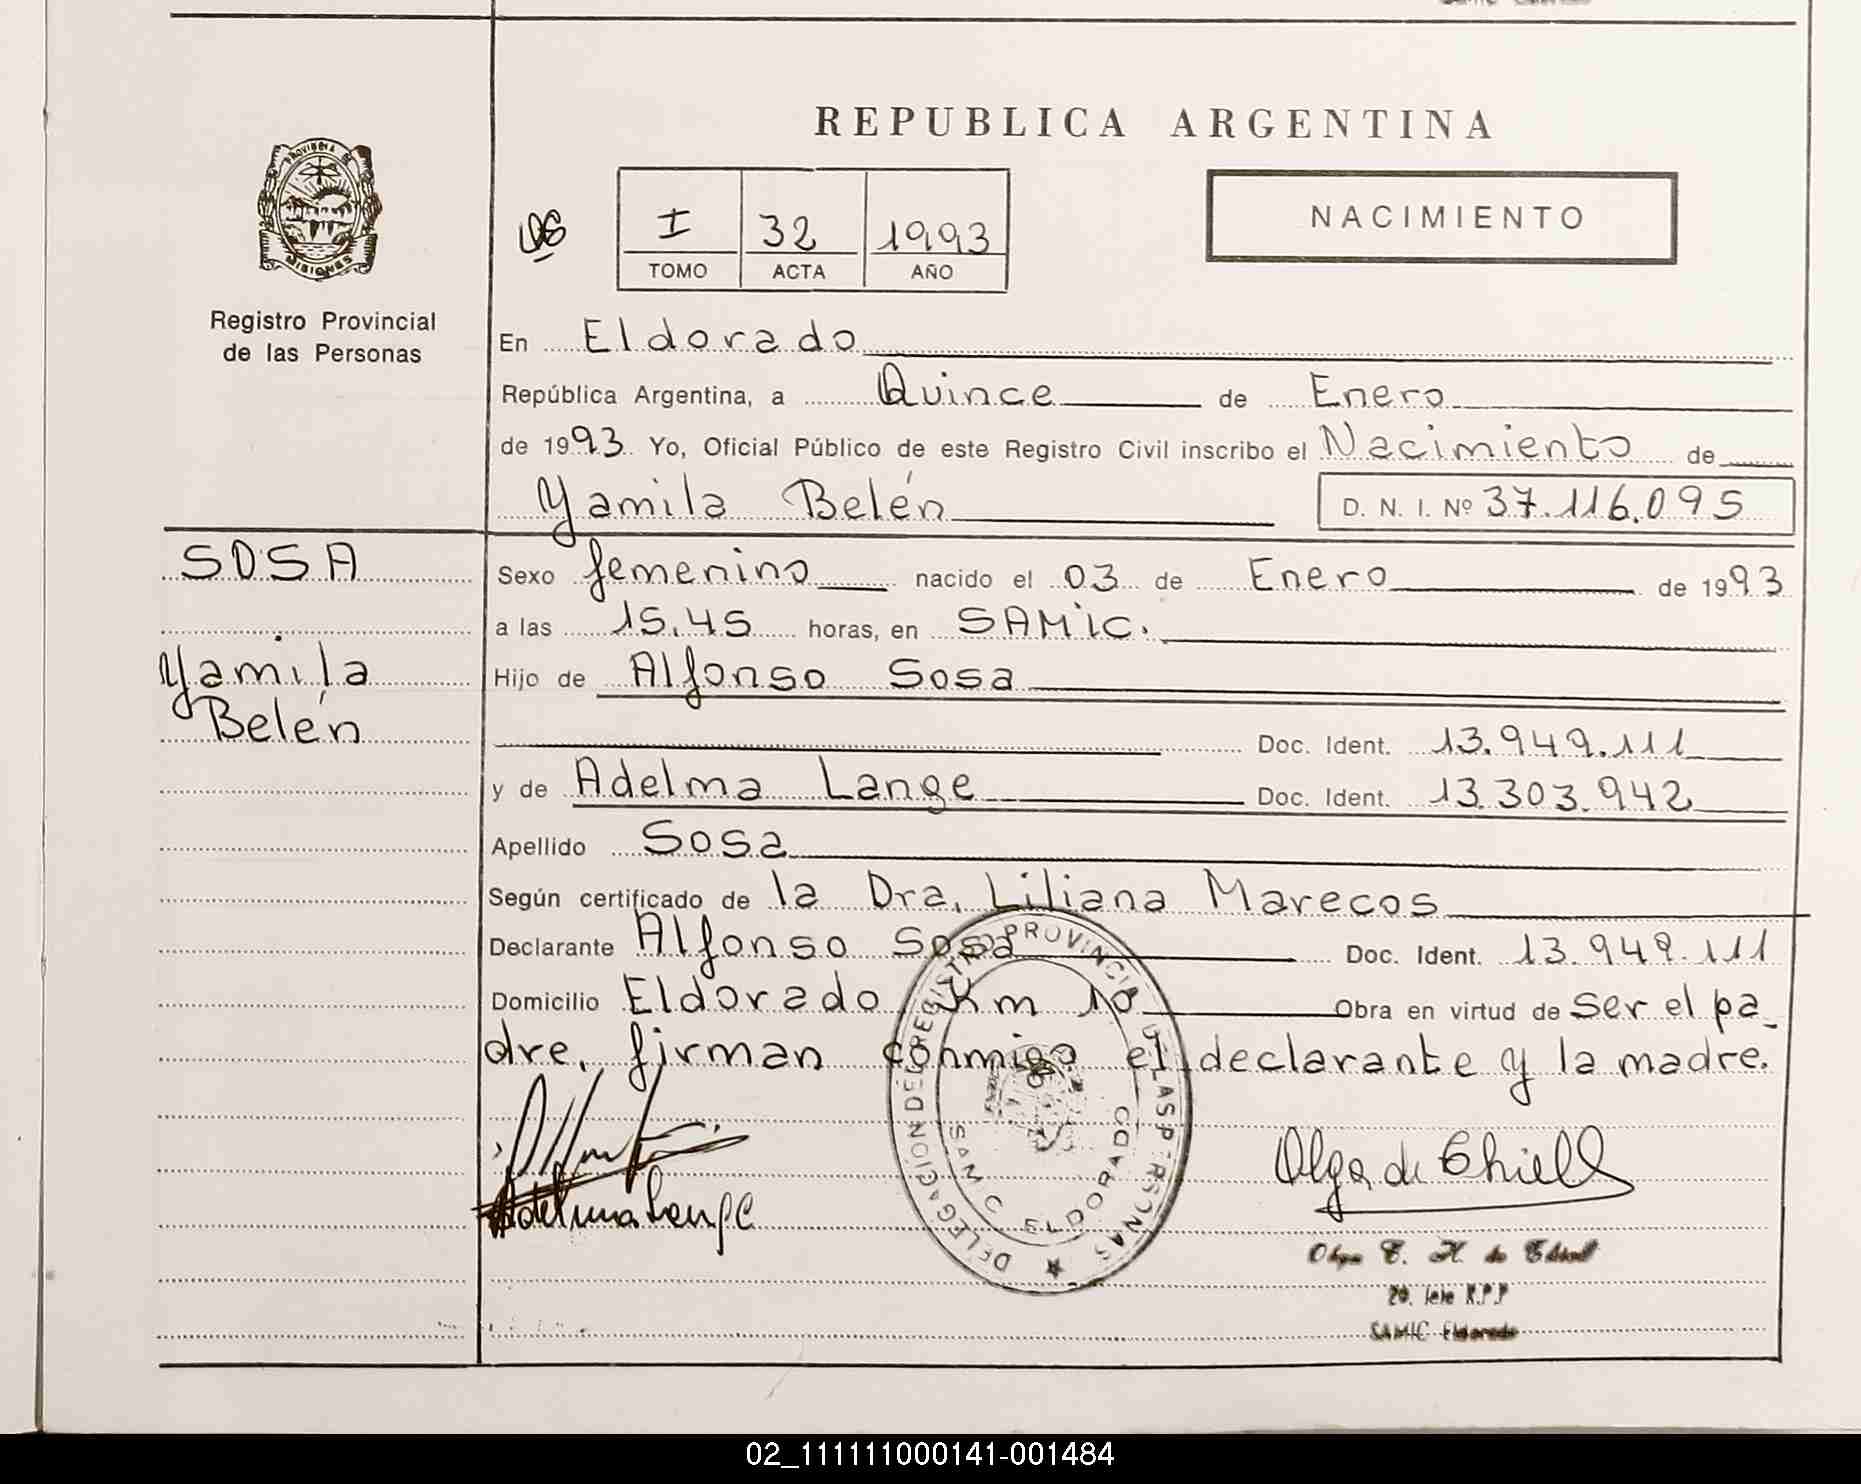 REPUBLICA ARGENTINA
PROVINCIA DE
MISIONES
Registro Provincial
de las Personas
I 32 1993
TOMO ACTA AÑO
NACIMIENTO
En Eldorado
República Argentina, a Quince de Enero
de 1993. Yo, Oficial Público de este Registro Civil inscribo el Nacimiento de
Yamila Belén D. N. I. Nº 37.116.095
SOSA
Yamila
Belén
Sexo femenino nacido el 03 de Enero de 1993
a las 15.45 horas, en SAMIC.
Hijo de Alfonso Sosa
Doc. Ident. 13.949.111
y de Adelma Lange Doc. Ident. 13.303.942
Apellido Sosa
Según certificado de la Dra. Liliana Marecos
Declarante Alfonso Sosa Doc. Ident. 13.949.111
Domicilio Eldorado Km 10 Obra en virtud de Ser el pa_
dre, firman conmigo el declarante y la madre.
DELEGACION DEL REGISTRO PROVINCIAL DE LAS PERSONAS
SAMIC ELDORADO
Adelma Lange
Olga de Chiell
Olga T. H. de
Jefe R.P.P
SAMIC Eldorado
02_111111000141-001484